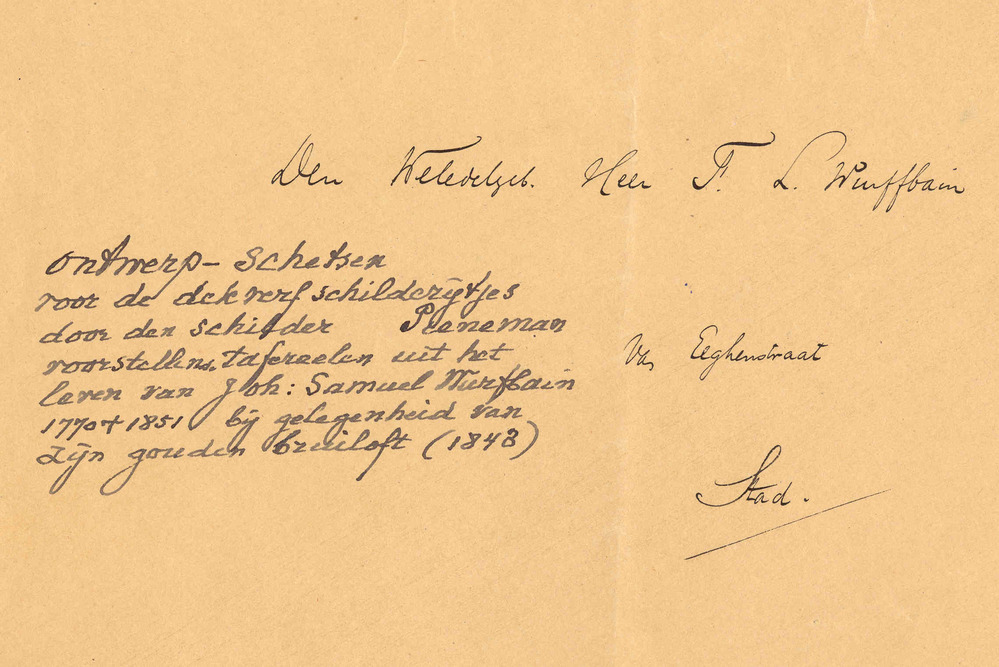 Den Weledelgeb. Heer F. L. Wurffbain
ontwerp-schetsen
voor de dekverf schilderijtjes
door den schilder Pieneman
voorstellend. tafereelen uit het
leven van Joh: Samuel Wurfbain
1770+1851 bij gelegenheid van
zijn gouden bruiloft (1843)
Van Eeghenstraat
Stad.